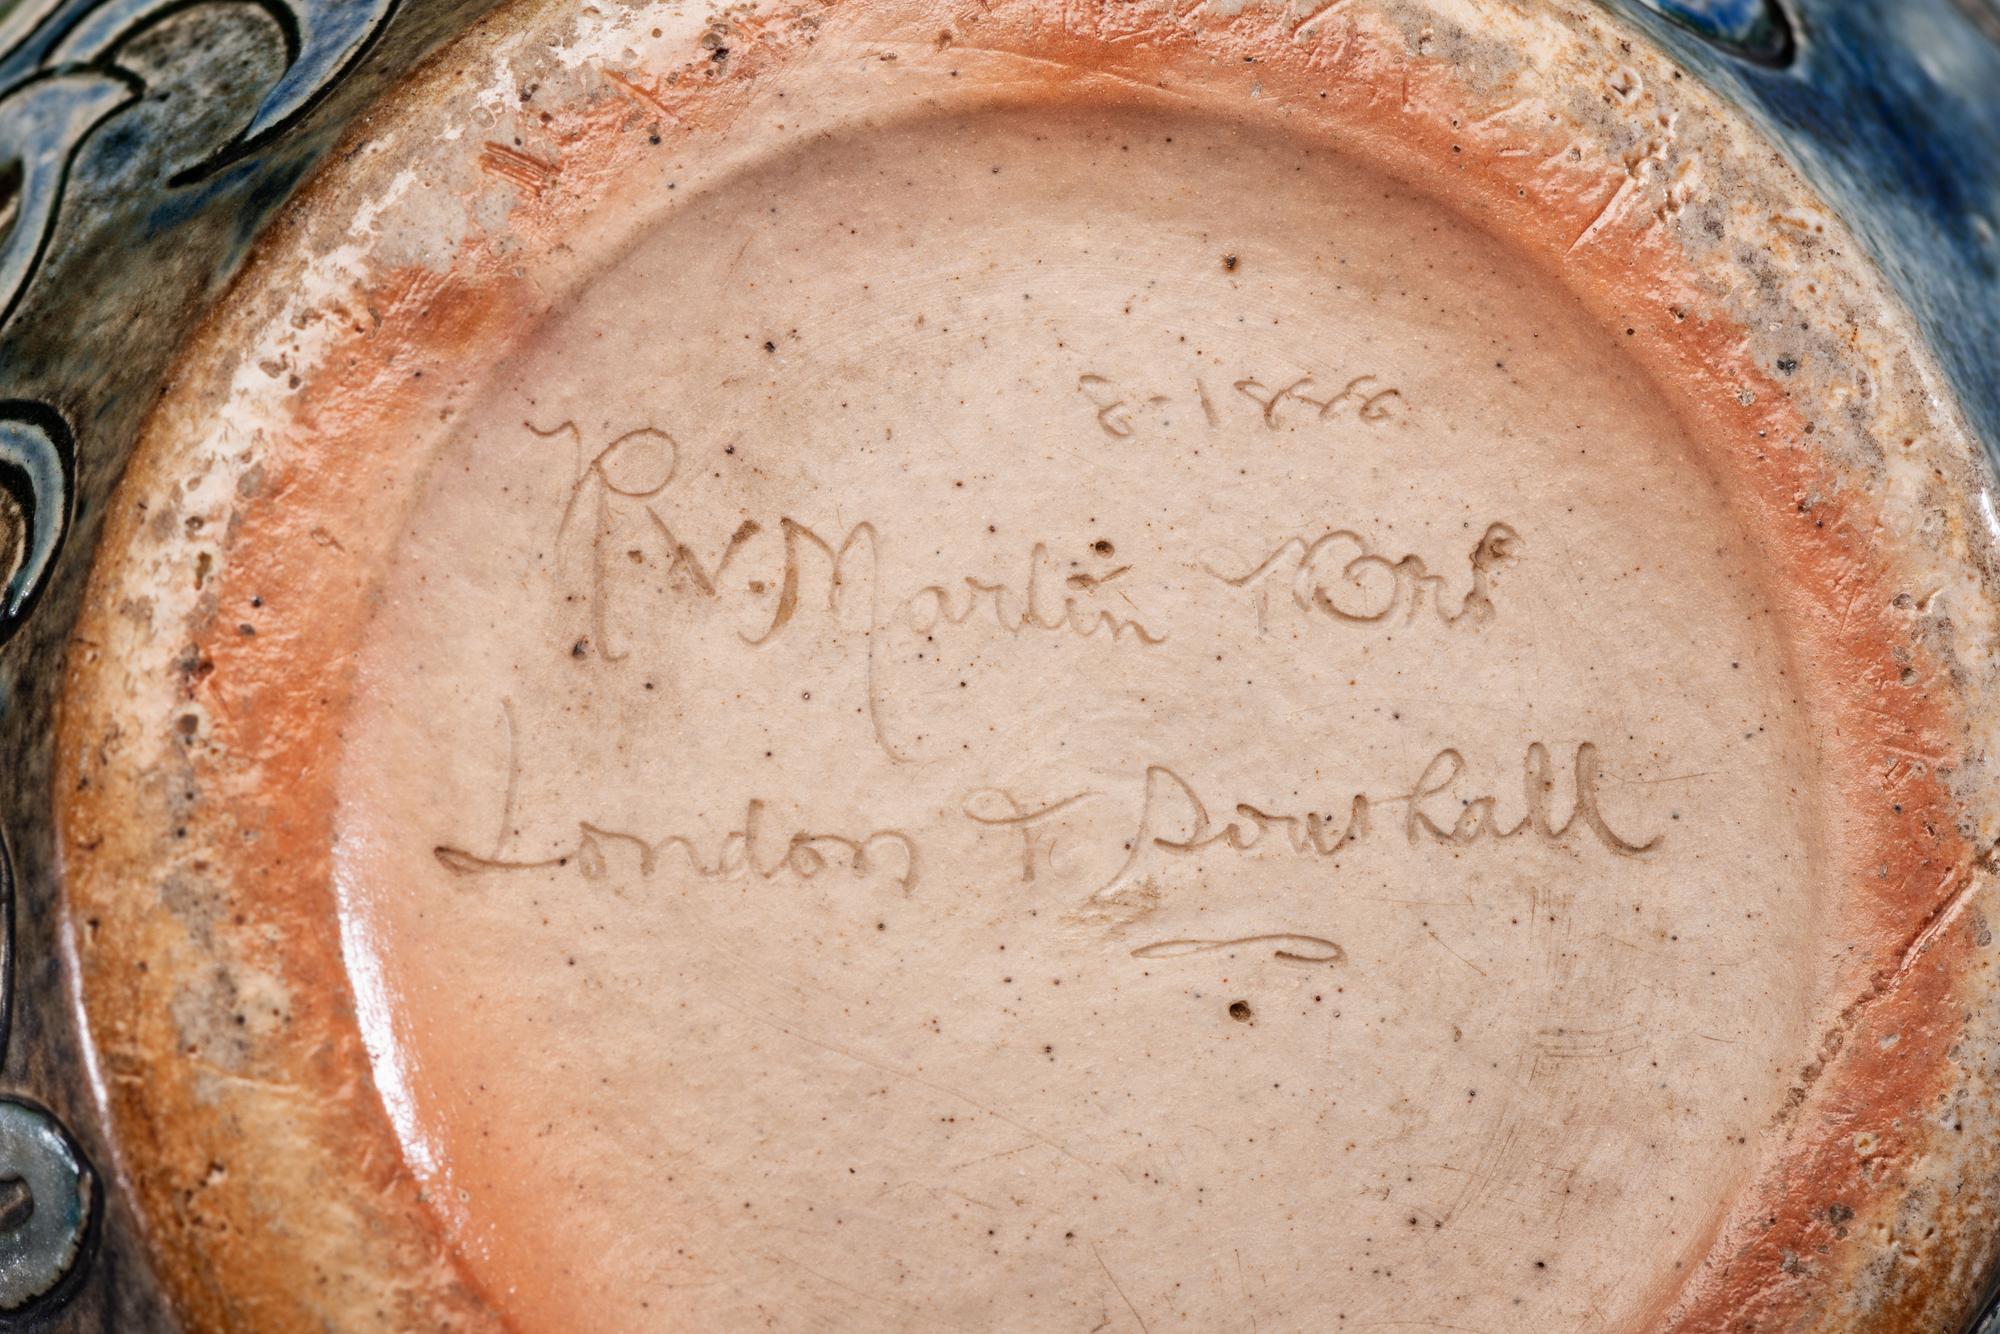 8-1888
R.W. Martin & Bros
London & Southall